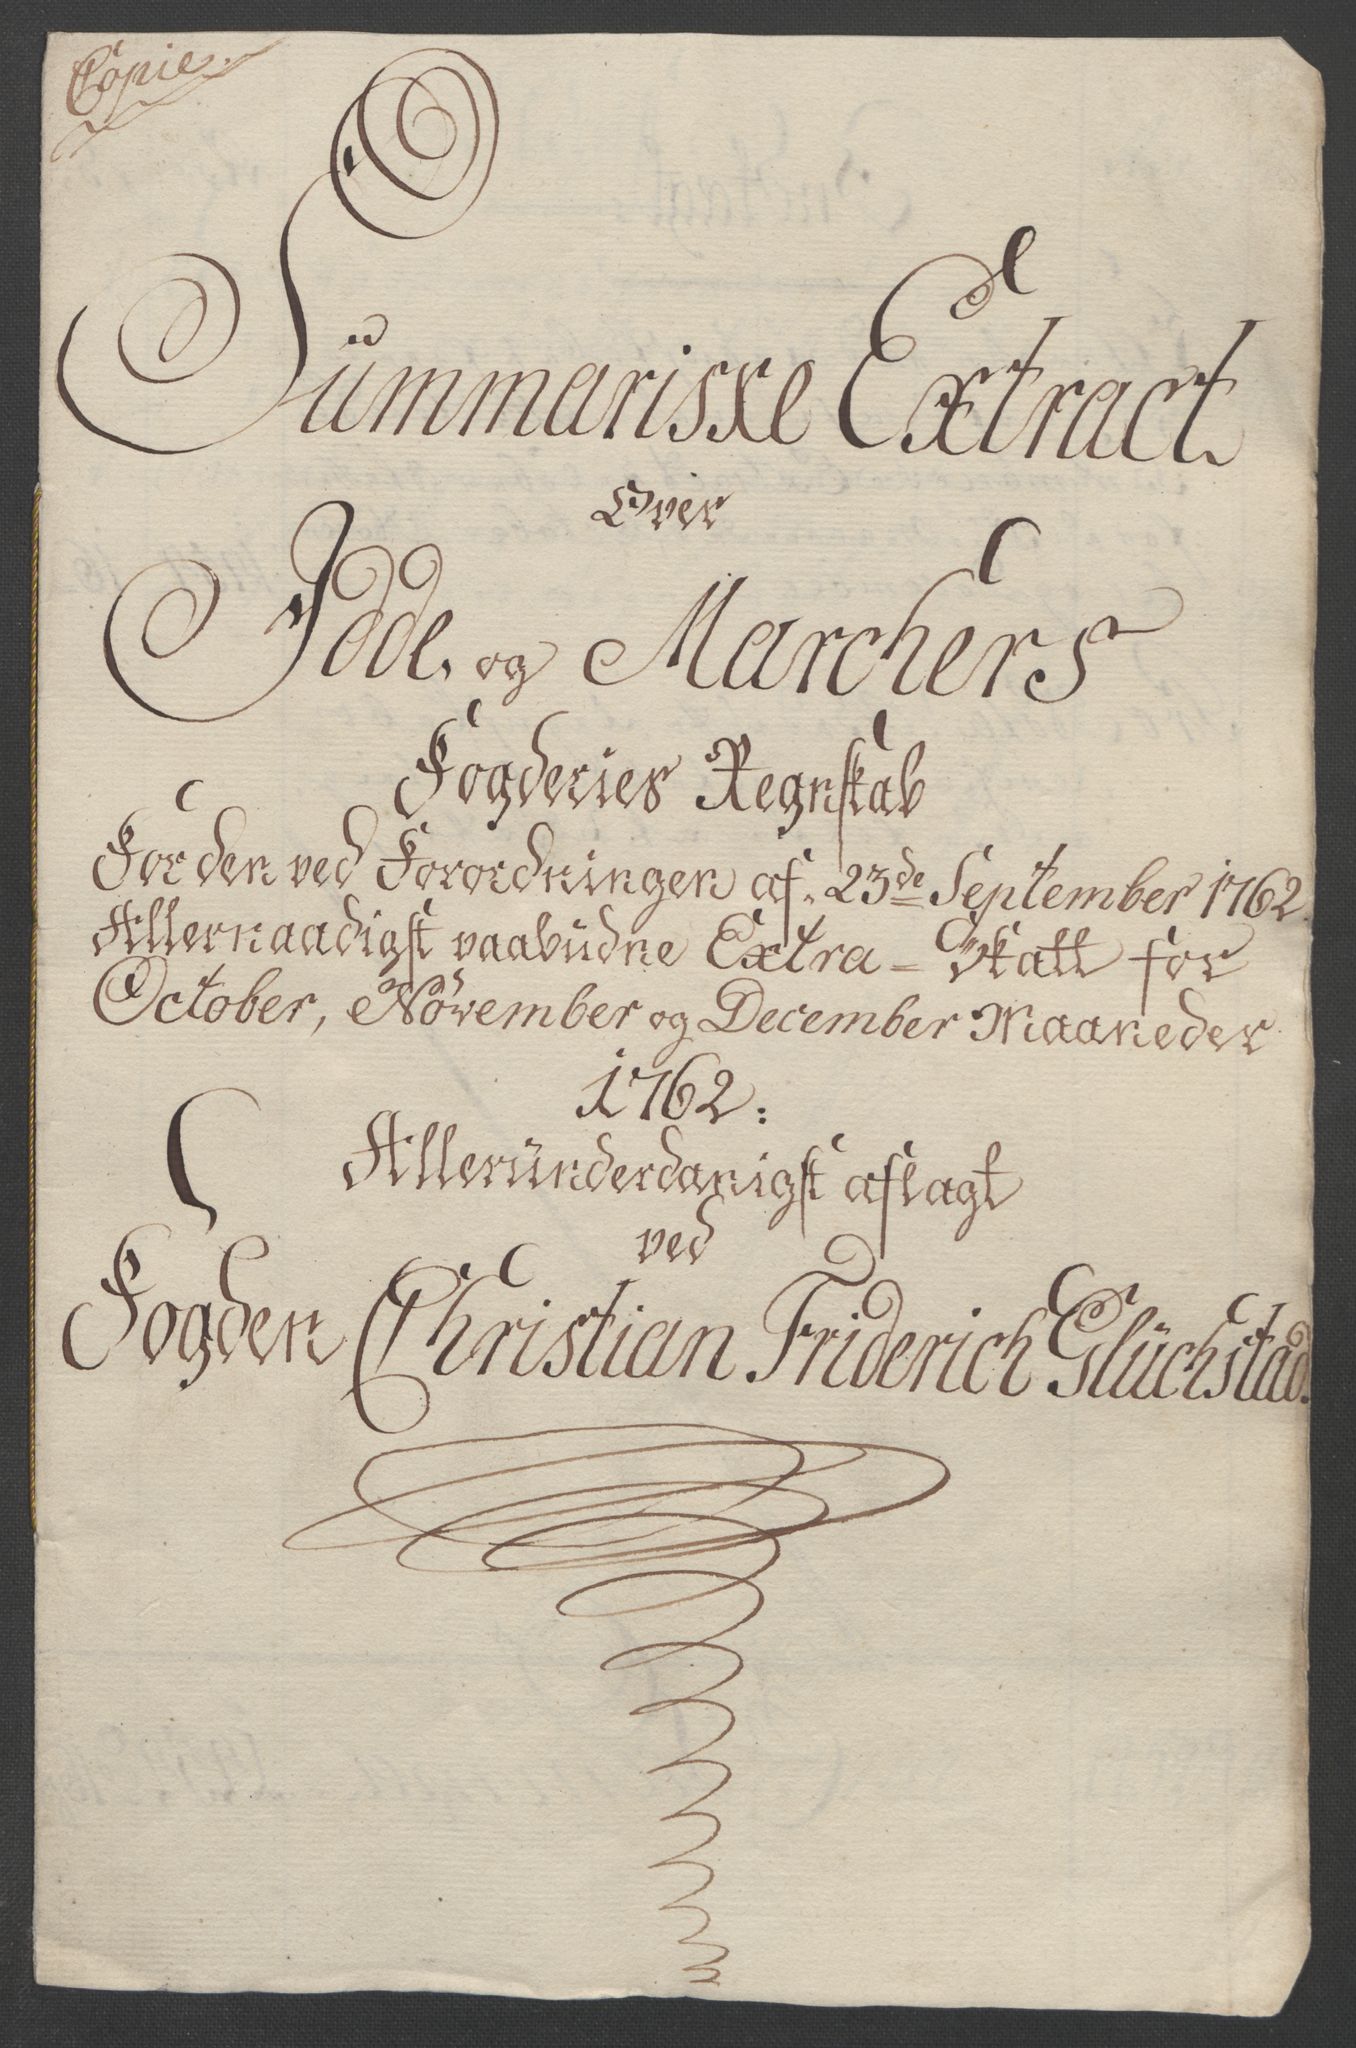 Copie.
Summariske Extract
Over
Idde, og Marchers
Fogderies Regnskab
For den ved Forordningen af 23de September 1762
Allernaadigst paabudne Extra-Skatt for
October, November og December Maaneder
1762:
Alleründerdanigst aflagt
ved
Fogden Christian Friderich Glückstad.